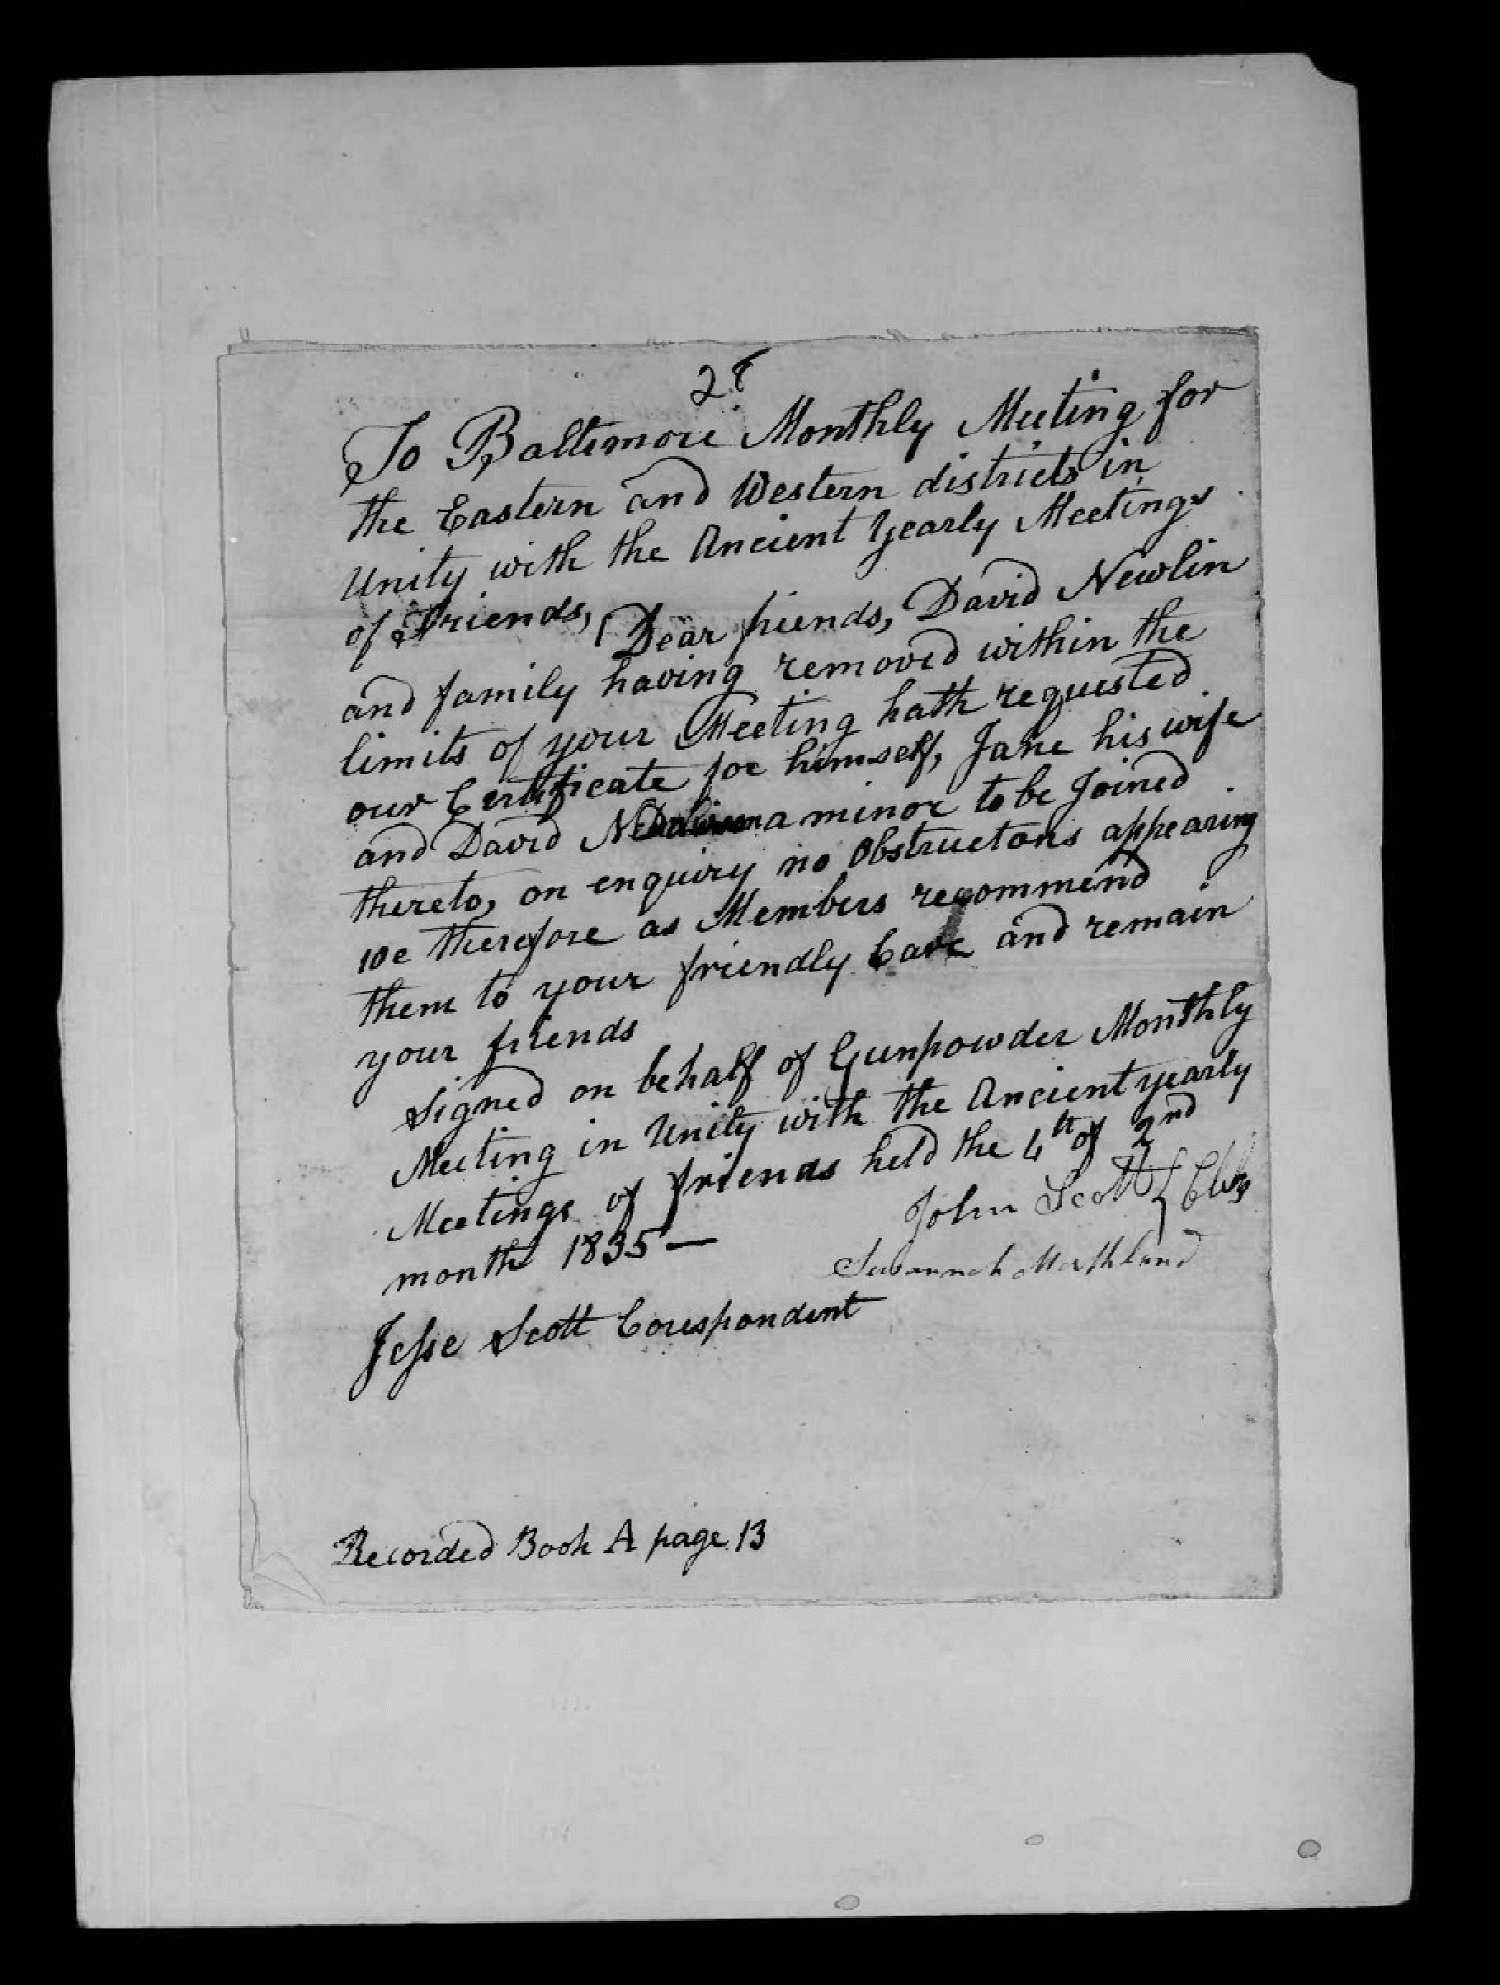 28
To Baltimore Monthly Meeting for
the Eastern and Western districts in
Unity with the Ancient Yearly Meetings
of Friends, Dear friends, David Newlin
and family having removed within the
limits of your Meeting hath requested
our Certificate for himself, Jane his wife
and David a minor to be Joined
thereto, on enquiry no Obstructons appearing
we therefore as Members recommend
them to your friendly Care and remain
your friends
Signed on behalf of Gunpowder Monthly
Meeting in Unity with the Ancient yearly
Meetings of friends held the 4th of 2nd
month 1835 —
John Scott } Clks
Susannah
Jesse Scott Corespondent
Recorded Book A page 13